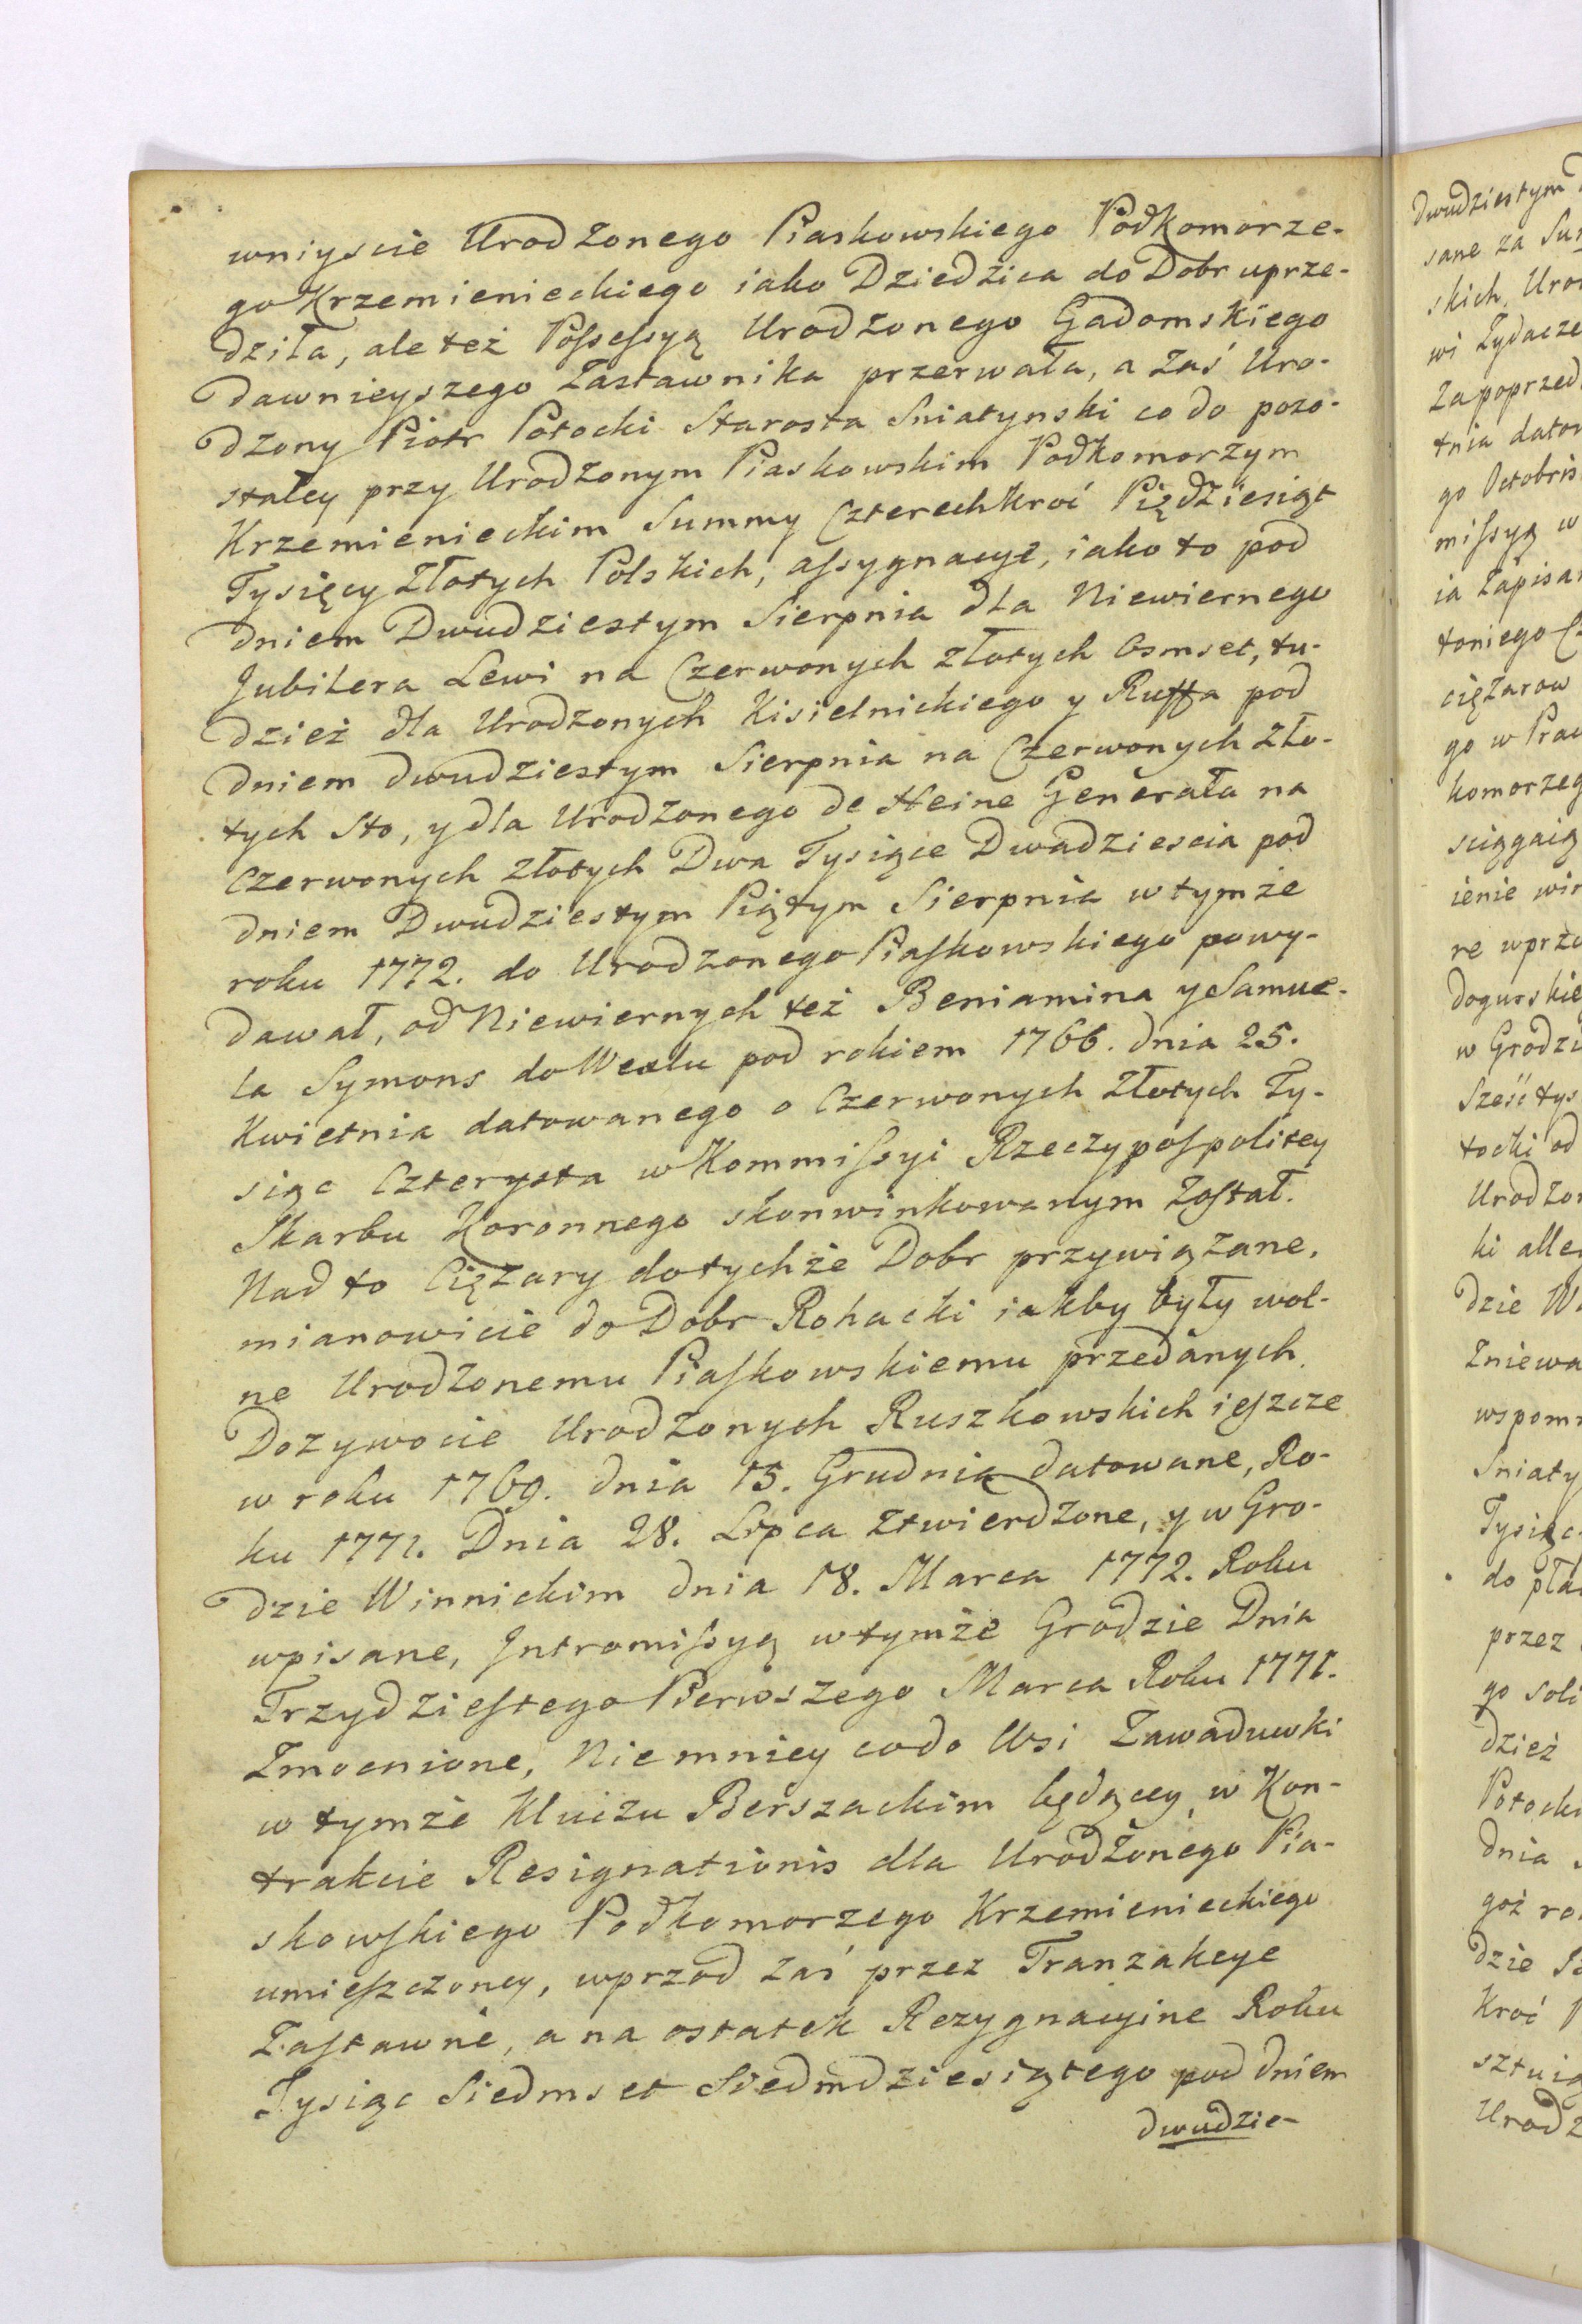 wniyscie Urodzonego Piaskowskiego Podkomorze-
go Krzemienieckiego iako Dziedzica do Dobr uprze-
dziła, ale też Possessyą Urodzonego Gadomskiego
dawnieyszego Zastawnika przerwała, a zaś Uro-
dzony Piotr Potocki Starosta Sniatynski co do pozo-
stałey przy Urodzonym Piaskowskim Podkomorzym
Krzemienieckim Summy Czterechkroć Piędziesiąt
Tysięcy Złotych Polskich, assygnacye, iako to pod
dniem Dwudziestym Sierpnia dla Niewiernego
Jubilera Lewi na Czerwonych złotych Osmset, tu-
dzież dla Urodzonych Kisielnickiego y Ruffa pod
dniem dwudziestym Sierpnia na Czerwonych Zło-
tych Sto, y dla Urodzonego de Heine Generała na
Czerwonych Złotych Dwa Tysiące Dwadziescia pod
dniem Dwudziestym Piątym Sierpnia w tymże
roku 1772. do Urodzonego Piaskowskiego powy-
dawał, od Niewiernych też Beniamina y Samue-
la Symons do Wexlu pod rokiem 1766. dnia 25.
Kwietnia datowanego o Czerwonych Złotych Ty-
siąc Czterysta w Kommissyi Rzeczypospolitey
Skarbu Koronnego skonwinkowanym został.
Nad to Ciężary do tychże Dobr przywiązane,
mianowicie do Dobr Rohacki iakby były wol-
ne Urodzonemu Piaskowskiemu przedanych
Dozywocie Urodzonych Ruszkowskich ieszcze
w roku 1769. dnia 15. Grudnia datowane, Ro-
ku 1771. Dnia 28. Lipca ztwierdzone, y w Gro-
dzie Winnickim dnia 18. Marca 1772. Roku
wpisane, Intromissyą w tymże Grodzie Dnia
Trzydziestego Pierwszego Marca Roku 1771.
Zmocnione, Niemniey co do Wsi Zawaduwki
w tymże Kluczu Berszackim będącey, w Kon-
trakcie Resignationis dla Urodzonego Pia-
skowskiego Podkomorzego Krzemienieckiego
umieszczoney, wprzod zaś przez Tranzakcye
Zastawne, a na ostatek Rezygnacyine Roku
Tysiąc Siedmset Siedmdziesiątego pod dniem
dwudzie-
dwudziestym
sane za
skich, Uro
wi Żydacze
Za poprzed
tnia dato
go Octobris
missyą w
ia Zapisa
toniego
ciężarow
go w Pra
komorzeg
sciągaią
ienie wi
re wprzo
dogurskie
w Grodzi
Sześć tys
tocki od
Urodzo
ki alle
dzie W
Zniewa
wspom
Sniaty
Tysiąc
do pła
przez
go soli
dzież
Potocki
dnia
goż ro
dzie
Kroć
sztuią
Urodz